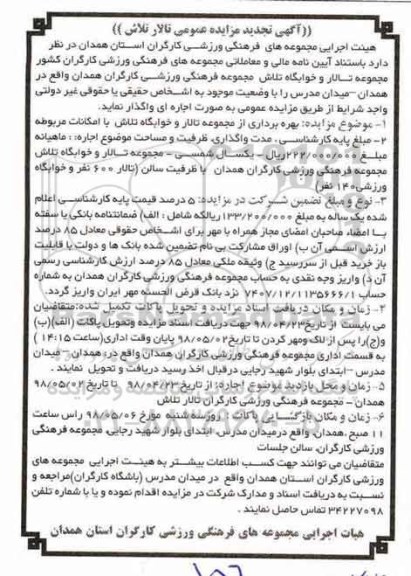 ((آگهی تجدید مزایده عمومی تالار تلاش ))
هیئت اجرایی مجموعه های فرهنگی ورزشی کارگران استان همدان در نظر
دارد باستناد آیین نامه مالی و معاملاتی مجموعه های فرهنگی ورزشی کارگران کشور
مجموعه تالار و خوابگاه تلاش مجموعه فرهنگی ورزشی کارگران همدان واقع در
همدان -میدان مدرس را با وضعیت موجود به اشخاص حقیقی یا حقوقی غیر دولتی
واجد شرایط از طریق مزایده عمومی به صورت اجاره ای واگذار نماید.
۱- موضوع مزایده: بهره برداری از مجموعه تالار و خوابگاه تلاش با امکانات مربوطه
۲- مبلغ پایه کارشناسی، مدت واگذاری، ظرفیت و مساحت موضوع اجاره: : ماهیانه
مبلغ ریال - یکسال شمسی - مجموعه تالار و خوابگاه تلاش
مجموعه فرهنگی ورزشی کارگران همدان با ظرفیت سالن (تالار ۶۰۰ نفر و خوابگاه
ورزشی ۱۴۰ نفر)
۳- نوع و مبلغ تضمین شرکت در مزایده: ۵ درصد قیمت پایه کارشناسی اعلام
شده یک ساله به مبلغ ۱۳۳/۲۰۰/۰۰۰ ریالکه شامل : الف) ضمانتنامه بانکی یا سفته
با امضاء صاحبان امضای مجاز همراه با مهر برای اشخاص حقوقی معادل ۸۵ درصد
ارزش اسمی آن ب) اوراق مشارکت بی نام تضمین شده بانک ها و دولت با قابلیت
باز خرید قبل از سررسید ج) وثیقه ملکی معادل ۸۵ درصد ارزش کارشناسی رسمی
آن د) واریز وجه نقدی به حساب مجموعه فرهنگی ورزشی کارگران همدان به شماره
حساب ۷۴۰۷/۱۲/۱۱۳۵۶۶۶/۱ نزد بانک قرض الحسنه مهر ایران واریز گردد.
۴- زمان و مکان دریافت اسناد مزایده و تحویل پاکات تکمیل شده: متقاضیان
می بایست از تاریخ ۹۸/۰۴/۲۳ جهت دریافت اسناد مزایده وتحویل پاکات (الف)(ب)
و(ج)را پس از لاک ومهر کردن تا تاریخ ۹۸/۰۵/۰۲ پایان وقت اداری(ساعت ۱۴:۱۵ )
به قسمت اداری مجموعه فرهنگی ورزشی کارگران همدان واقع در: همدان - میدان
مدرس -ابتدای بلوار شهید رجایی درقبال اخذ رسید دریافت و تحویل نمایند .
۵- زمان و محل بازدید موضوع اجاره: از تاریخ ۹۸/۰۴/۲۳ تا تاریخ ۹۸/۰۵/۰۲
همدان - مجموعه فرهنگی ورزشی کارگران تالار تلاش
۶- زمان و مکان بازگشایی پاکات : روزسه شنبه مورخ ۹۸/۰۵/۰۶ راس ساعت
۱۱ صبح .همدان، واقع درمیدان مدرس، ابتدای بلوار شهید رجایی، مجموعه فرهنگی
ورزشی کارگران، سالن جلسات
متقاضیان می توانند جهت کسب اطلاعات بیشتر به هیئت اجرایی مجموعه های
ورزشی کارگران استان همدان واقع در میدان مدرس (باشگاه کارگران)مراجعه و
نسبت به دریافت اسناد و مدارک شرکت در مزایده اقدام نموده و یا با شماره تلفن
۳۴۲۲۷۰۹۸ تماس حاصل نمایند .
هیات اجرایی مجموعه های فرهنگی ورزشی کارگران استان همدان